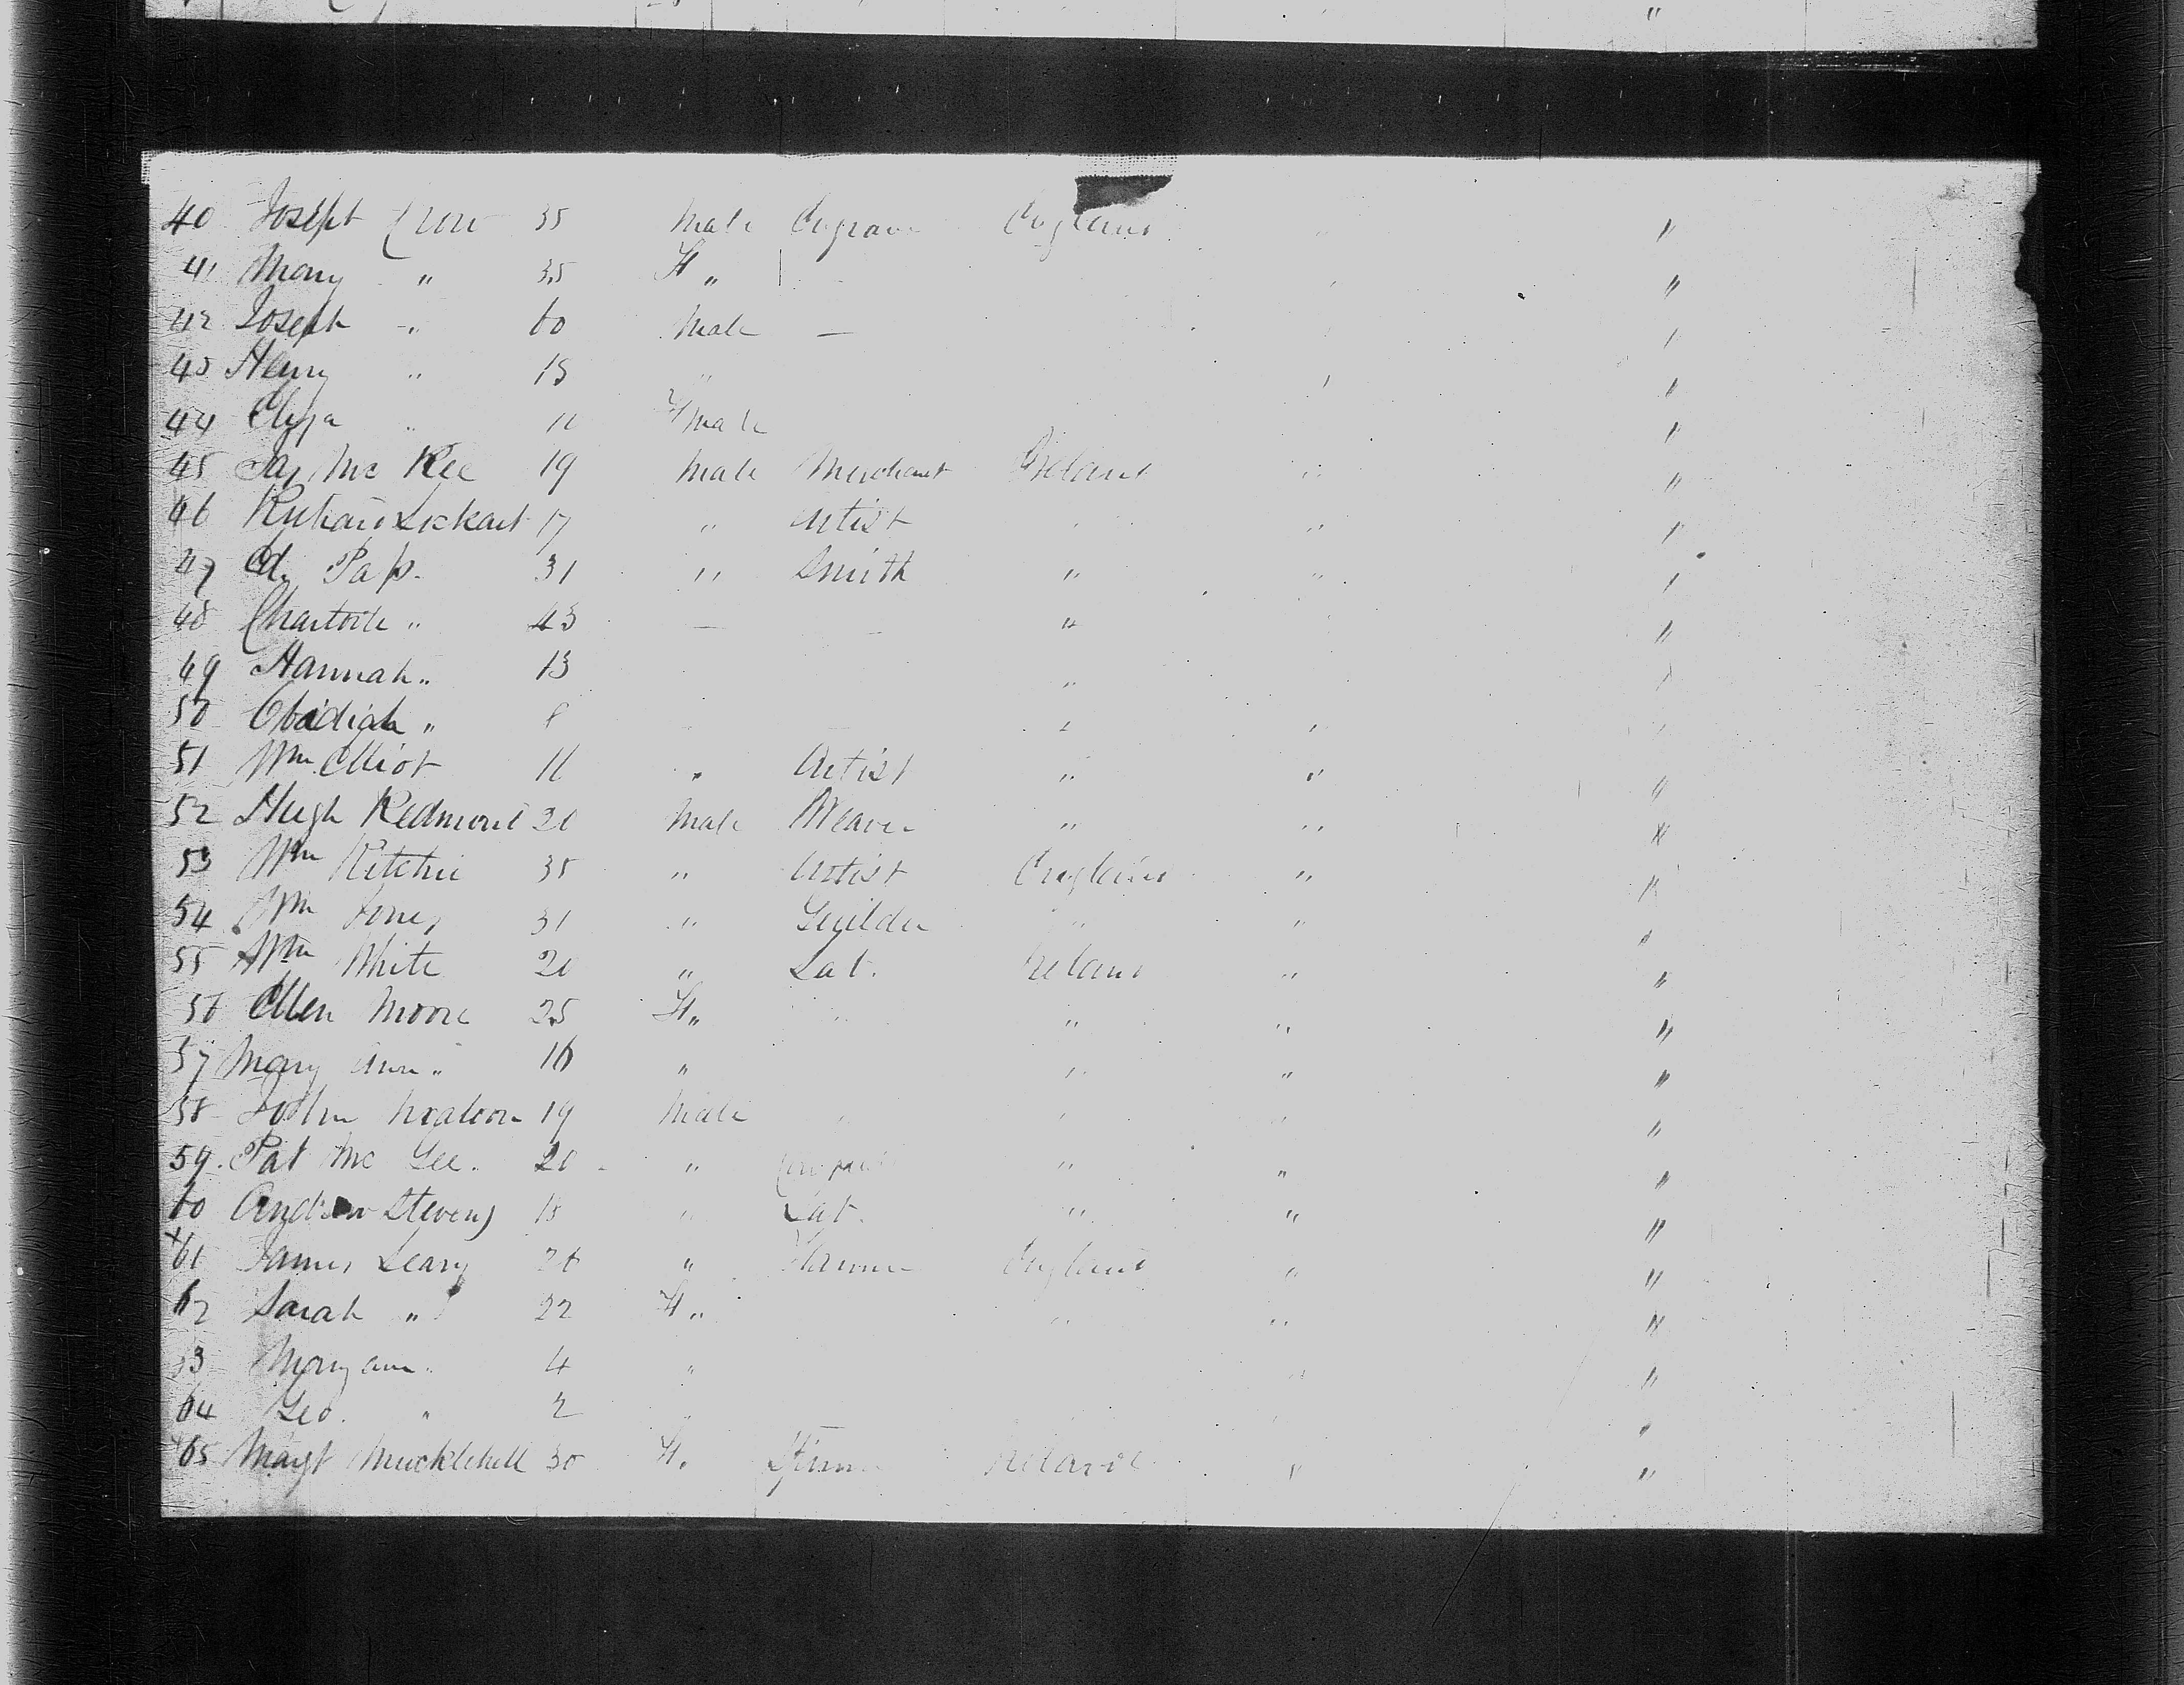 40 Joseph Crow 35 Male Engraver England " "
41 Mary " 35 F " "
42 Joseph " 60 Male — "
43 Henry " 13 " "
44 Eliza " 11 Fmale "
45 Jas Mc Kee 19 Male Merchant Ireland " "
46 Richard Lockart 17 " Artist " " "
47 Ed. Pap. 31 " Smith " " "
48 Charlotte " 43 — — " "
49 Hannah " 13 " "
50 Obidiah " 8 " " "
51 Wm Elliot 11 " Artist " " "
52 Hugh Redmond 20 Male Weaver " " "
53 Wm Ritchie 35 " Artist England " "
54 Wm Jones 31 " Guilder " " "
55 Wm White 20 " Lab. Ireland " "
56 Ellen Moore 25 F " " " "
57 Mary Ann " 16 " " " "
58 John 19 Male " " " "
59. Pat Mc Gee. 20 " " " "
60 Andrew Stevens 18 " Lab. " " "
61 James Leary 26 " Farmer England " "
62 Sarah " 22 F " " " "
63 Mary ann " 4 " " "
64 Geo. " 2 " "
65 Margt Mucklehill 30 F. Ireland " "